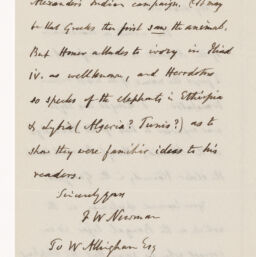 Alexander's Indian campaign, (It may
be that Greeks then first saw the animal.
But Homer alludes to ivory in Iliad
iv. as well known, and Herodotus
so speaks of the elephants in Ethiopia
& Lybia (Algeria? Tunis?) as to
show they were familiar ideas to his
readers.
Sincerely yours
F W Newman
To W Allingham Esq